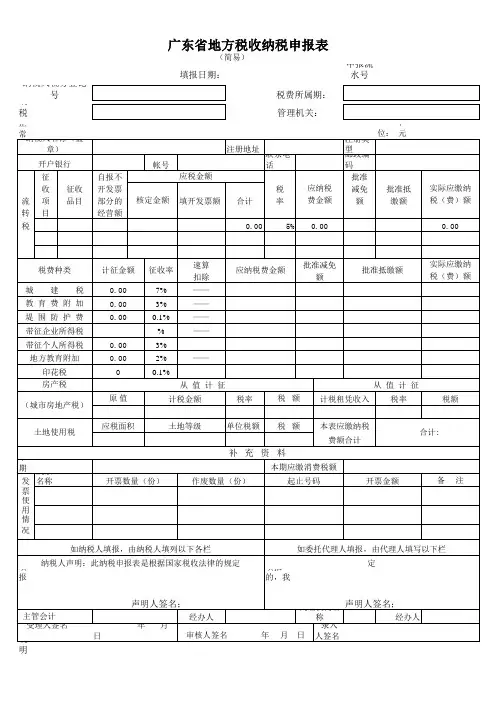 广东省地方税收纳税申报表
（简易）
填报日期： 水号
号 税费所属期：
税 管理机关：
位： 元
章） 注册地址 型
开户银行 帐号 话 码
流转税 征收项目 征收品目 自报不开发票部分的经营额 应税金额 税率 应纳税费金额 批准减免额 批准抵缴额 实际应缴纳税（费）额
核定金额 填开发票额 合计
0.00 5% 0.00 0.00
税费种类 计征金额 征收率 速算扣除 应纳税费金额 批准减免额 批准抵缴额 实际应缴纳税（费）额
城 建 税 0.00 7% ——
教 育 费 附 加 0.00 3% ——
堤 围 防 护 费 0.00 0.1% ——
带征企业所得税 % ——
带征个人所得税 0.00 3%
地方教育附加 0.00 2% ——
印花税 0 0.1%
房产税 从 值 计 征 从 值 计 征
（城市房地产税） 原 值 计税金额 税率 税 额 计税租凭收入 税率 税额
土地使用税 应税面积 土地等级 单位税额 税 额 本表应缴纳税费额合计 合计:
补 充 资 料
期 本期应缴消费税额
发票使用情况 名称 开票数量（份） 作废数量（份） 起止号码 开票金额 备 注
如纳税人填报，由纳税人填列以下各栏 如委托代理人填报，由代理人填写以下栏
纳税人声明：此纳税申报表是根据国家税收法律的规定 定
报 的，我
声明人签名： 声明人签名：
主管会计 经办人 称 经办人
受理人签名 年 月 日 审核人签名 年 月 日 录入人签名
明